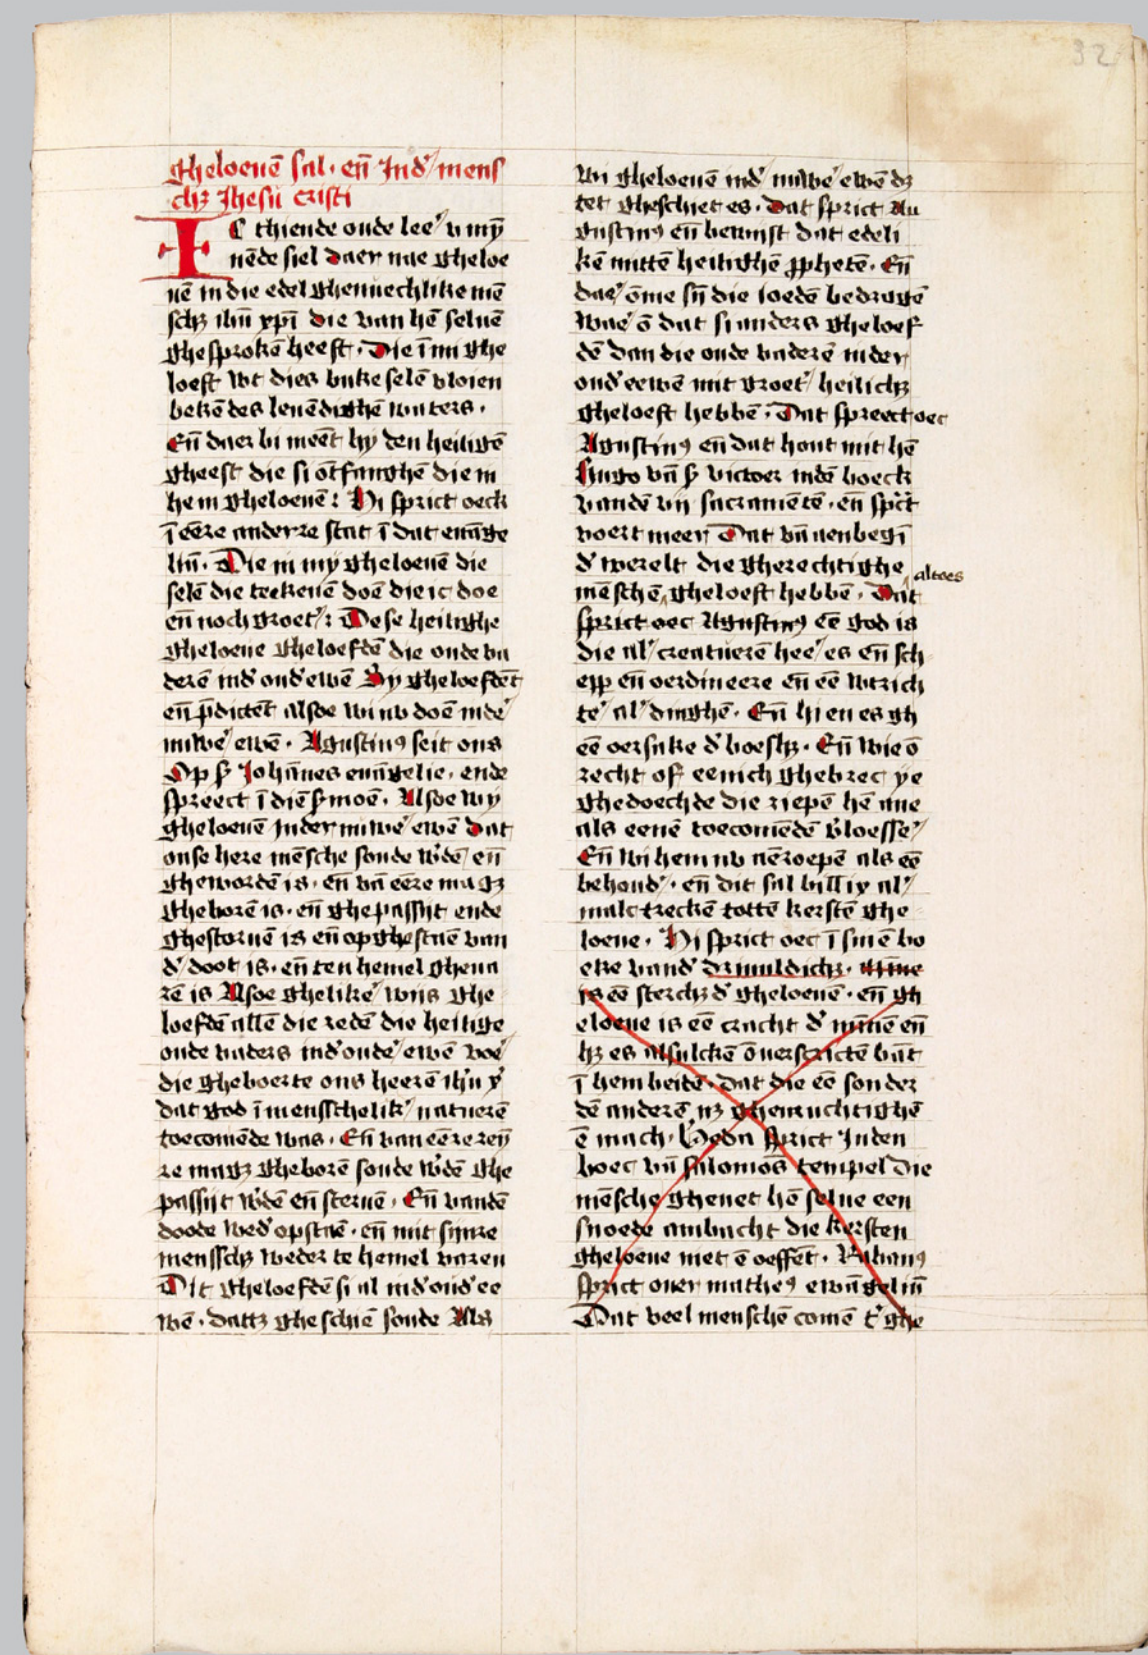 32
gheloeuē sal · en̄ Jnd' mens
chꝫ Jhesū cristi
IC thiende oude lee' v mȳ
nēde siel daer nae gheloe
uē in die edel ghenuechlike mē
schꝫ ihū xpī die van hē seluē
ghesprokē heeft · Die ī mi ghe
loeft wt dies buke selē vloien
bekē des leuēdighē waters ·
En̄ daer bi meēt hy den heiligē
gheest die si ōtfanghē die in
hem gheloeuē : Hi sprict oeck
ī eēre anderre stat ī dat euāge
liū · Die in my gheloeuē die
selē die teekenē doē die ic doe
en̄ noch groet' : Dese heilighe
gheloeue gheloefdē die oude va
derē ind' oud' ewē Sy gheloefdēt
en̄ p̄dictēt alsoe wi nv doē inde'
nuwe' ewē · Agustinꝰ seit ons
Op s' Johānes euāgelie · ende
spreect ī diē s'moē · Alsoe wy
gheloeuē Jnder nuwe' ewē dat
onse here mēsche soude w'dē en̄
ghewordē is · en̄ vā eēre magꝫ
gheborē is · en̄ ghepassijt ende
ghestoruē is en̄ opghestaē van
d' doot is · en̄ ten hemel gheua
rē is Alsoe ghelike' wijs ghe
loefdē allē die redē die heilige
oude vaders ind' oude' ewē voe'
die gheboerte ons heerē ihū x'
dat god ī mensschelik' natuerē
toecomēde was · En̄ van eēre reȳ
re magꝫ gheborē soude w'dē ghe
passijt w'dē en̄ steruē · En̄ vandē
doode wed' opstaē · en̄ mit sijnre
mensschꝫ weder te hemel varen
Dit gheloefdē si al ind' oud' ee
wē · dattꝫ gheschiē soude Als
wi gheloeuē ind' nuwe' ewē dꝫ
tet gheschiet es · Dat sprict Au
gustinꝰ en̄ bewijst dat edeli
kē mittē heilighē ꝓphetē · En̄
dae' ōme sȳ die ioedē bedragē
wae' ō dat si anders gheloef
dē dan die oude vaderē inder
oud' eewē mit groet' heilichꝫ
gheloeft hebbē · Dat spreect oec
Agustinꝰ en̄ dat hout mit hē
Hugo vā s' victoer indē boeck
vandē vij sacramētē · en̄ sp'ct
voert meer Dat vā aenbegī
d' werelt die gherechtighe
mēschē altoes gheloeft hebbē · Dat
sprict oec Agustinꝰ eē god is
die al' creatuerē hee' es en̄ sch
epp en̄ oerdineere en̄ eē wtrich
te' al' dinghē · En̄ hi en es gh
eē oersake d' boeshꝫ · En̄ wie ō
recht of eenich ghebrec ye
ghedoechde die riepē hē ane
als eenē toecomēdē v'loesse'
En̄ wi hem nv aēroepē als eē
behoud' · en̄ dit sal billix al'
malc treckē tottē kerstē ghe
loeue · Hi sprict oec ī sinē bo
eke vand' drieuuldichꝫ ·
is eē sterchꝫ d' gheloeuē · en̄ gh
eloeue is eē cracht d' mīnē en̄
hꝫ es alsulckē ōuerscrictē bāt
ī hem beidē · dat die eē sonder
dē anderē nꝫ ghenuchtighē
ē mach · Beda sprict Jnden
boec vā salomōs tempel die
mēsche gheuet hē selue een
snoede ambacht die kersten
gheloeue niet ē oeffēt · Rabanꝰ
sprict ouer matheꝰ ewāgeliū
Dat veel menschē comē t' ghe